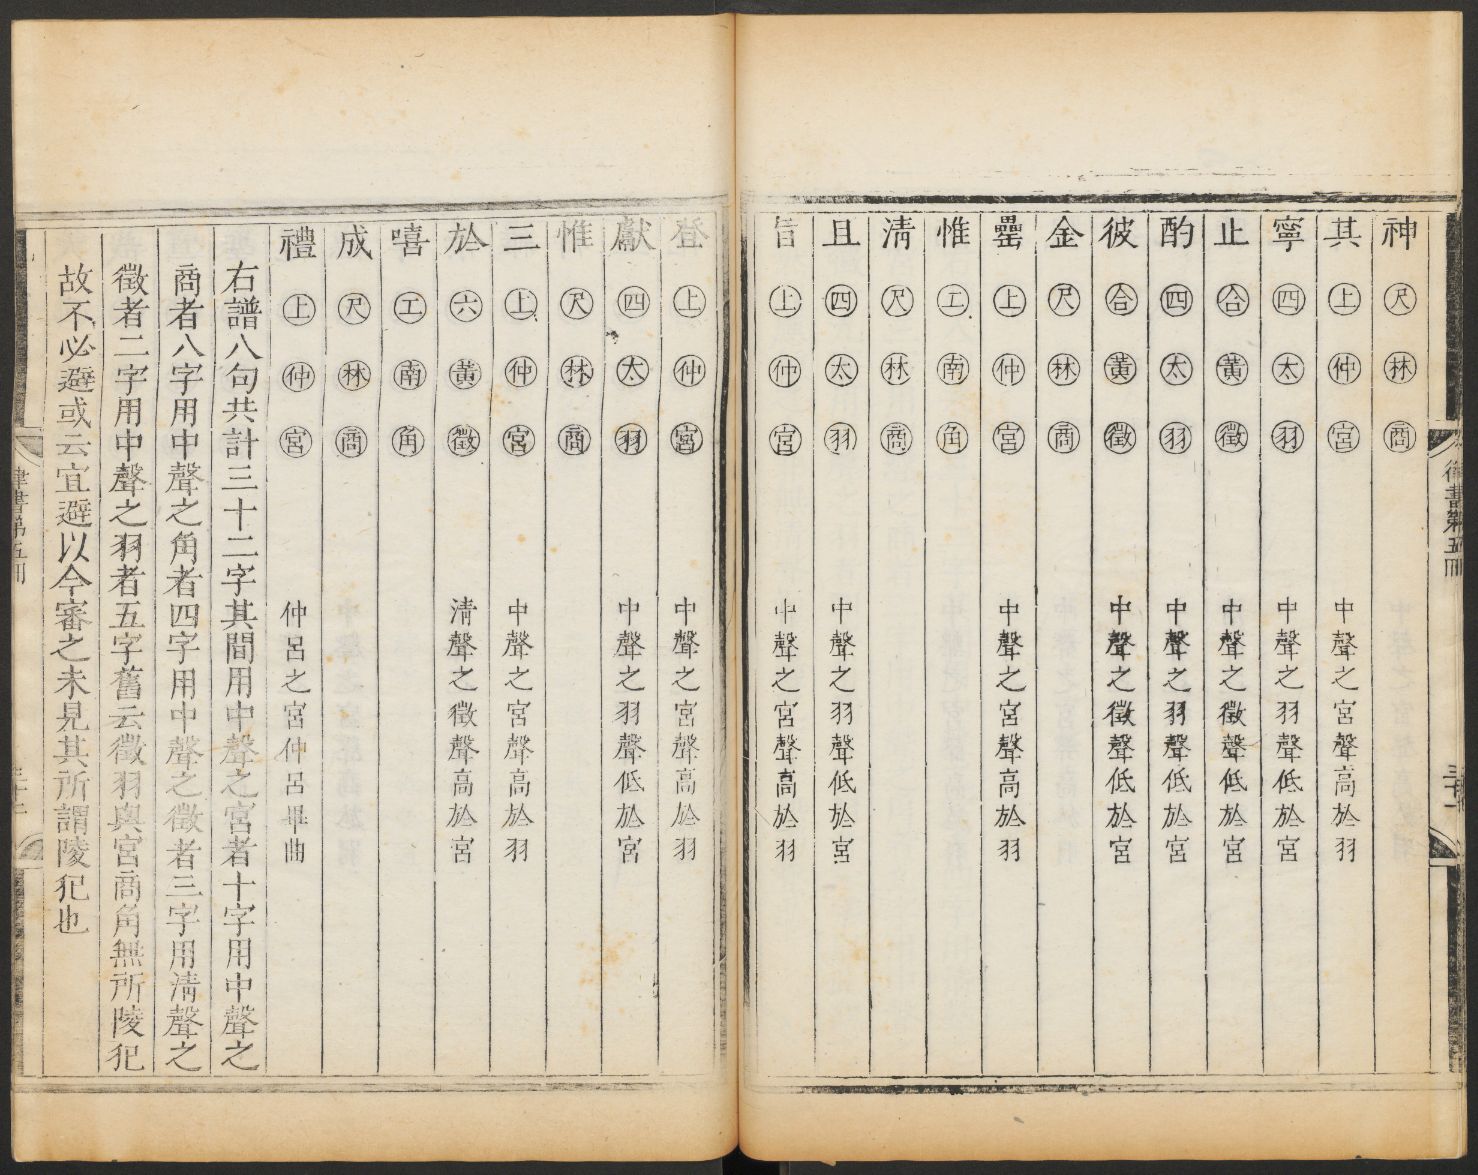 神 尺 林 商
其 上 仲 宮 中聲之宮聲高於羽
寧 四 太 羽 中聲之羽聲低於宮
止 合 黃 徵 中聲之徵聲低於宮
酌 四 太 羽 中聲之羽聲低於宮
彼 合 黃 徵 中聲之徵聲低於宮
金 尺 林 商
罍 上 仲 宮 中聲之宮聲高於羽
惟 工 南 角
清 尺 林 商
且 四 太 羽 中聲之羽聲低於宮
旨 上 仲 宮 中聲之宮聲高於羽
登 上 仲 宮 中聲之宮聲高於羽
獻 四 太 羽 中聲之羽聲低於宮
惟 尺 林 商
三 上 仲 宮 中聲之宮聲高於羽
於 六 黃 徵 清聲之徵聲高於宮
嘻 工 南 角
成 尺 林 商
禮 上 仲 宮 仲呂之宮仲呂畢曲
右譜八句共計三十二字其間用中聲之宮者十字用中聲之
商者八字用中聲之角者四字用中聲之徵者三字用清聲之
徵者二字用中聲之羽者五字舊云徵羽與宮商角無所陵犯
故不必避或云宜避以今審之未見其所謂陵犯也
律書第五冊
律書第五冊